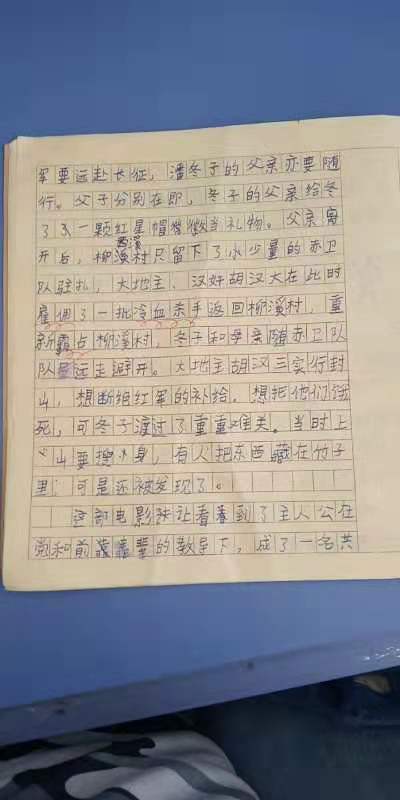 军要远赴长征，潘冬子的父亲亦要随
行。父子分别在即，冬子的父亲给冬
了子一颗红星帽徽当礼物。父亲离
开后，柳溪村只留下了少量的赤卫
队驻扎，大地主、汉奸胡汉大在此时
雇佣了一批冷血杀手返回柳溪村，重
新霸占柳溪村，冬子和母亲随赤卫队
队远走避开。大地主胡汉三实行封
山，想断绝红军的补给。想把他们饿
死，可冬子渡过了重重难关。当时上
山要搜身，有人把东西藏在竹子
里，可是还被发现了。
这部电影让看到了主人公在
党和前辈的教导下，成了一名共